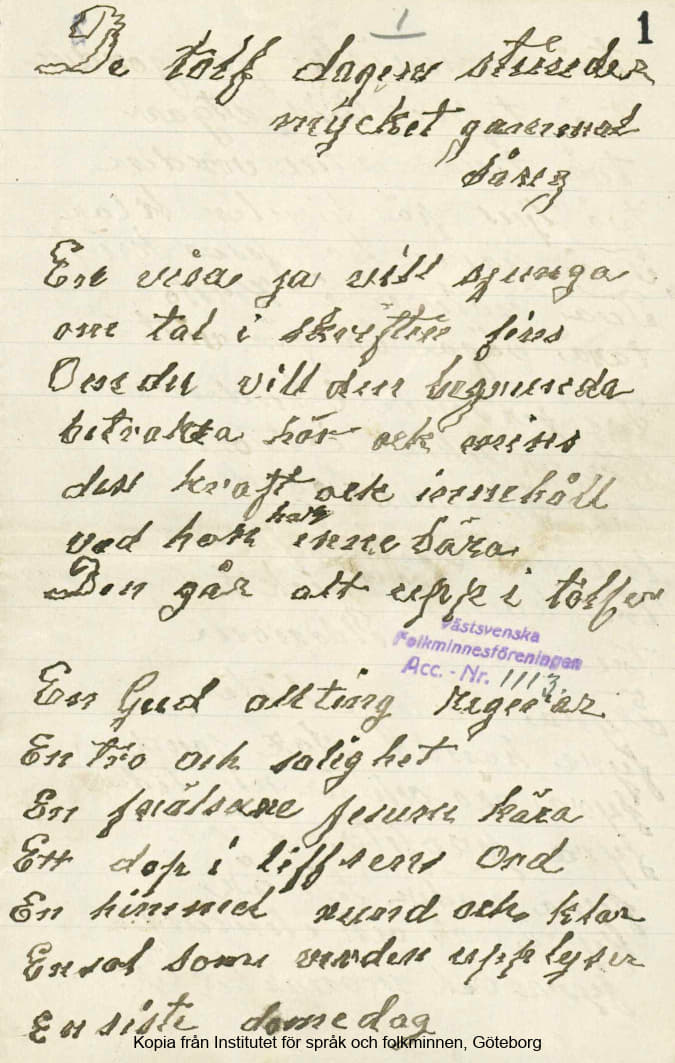 1
1
De tolf dagens stunder
mycket gammal
sång
En visa ja vill sjunga
om tal i skriften fins
Om du vill den begrunda
betrakta hör ock mins
den kraft ock innehåll
vad hon har innebära
Den går alt upp i tolfv
Västsvenska
Folkminnesföreningen
Acc. - Nr. 1113.
En Gud allting regerar
En tro och salighet
En frälsare Jesum kära
Ett dop i liffsens Ord
En himmel rund och klar
En sol som verden upplyser
En siste domedag
Kopia från Institutet för språk och folkminnen, Göteborg